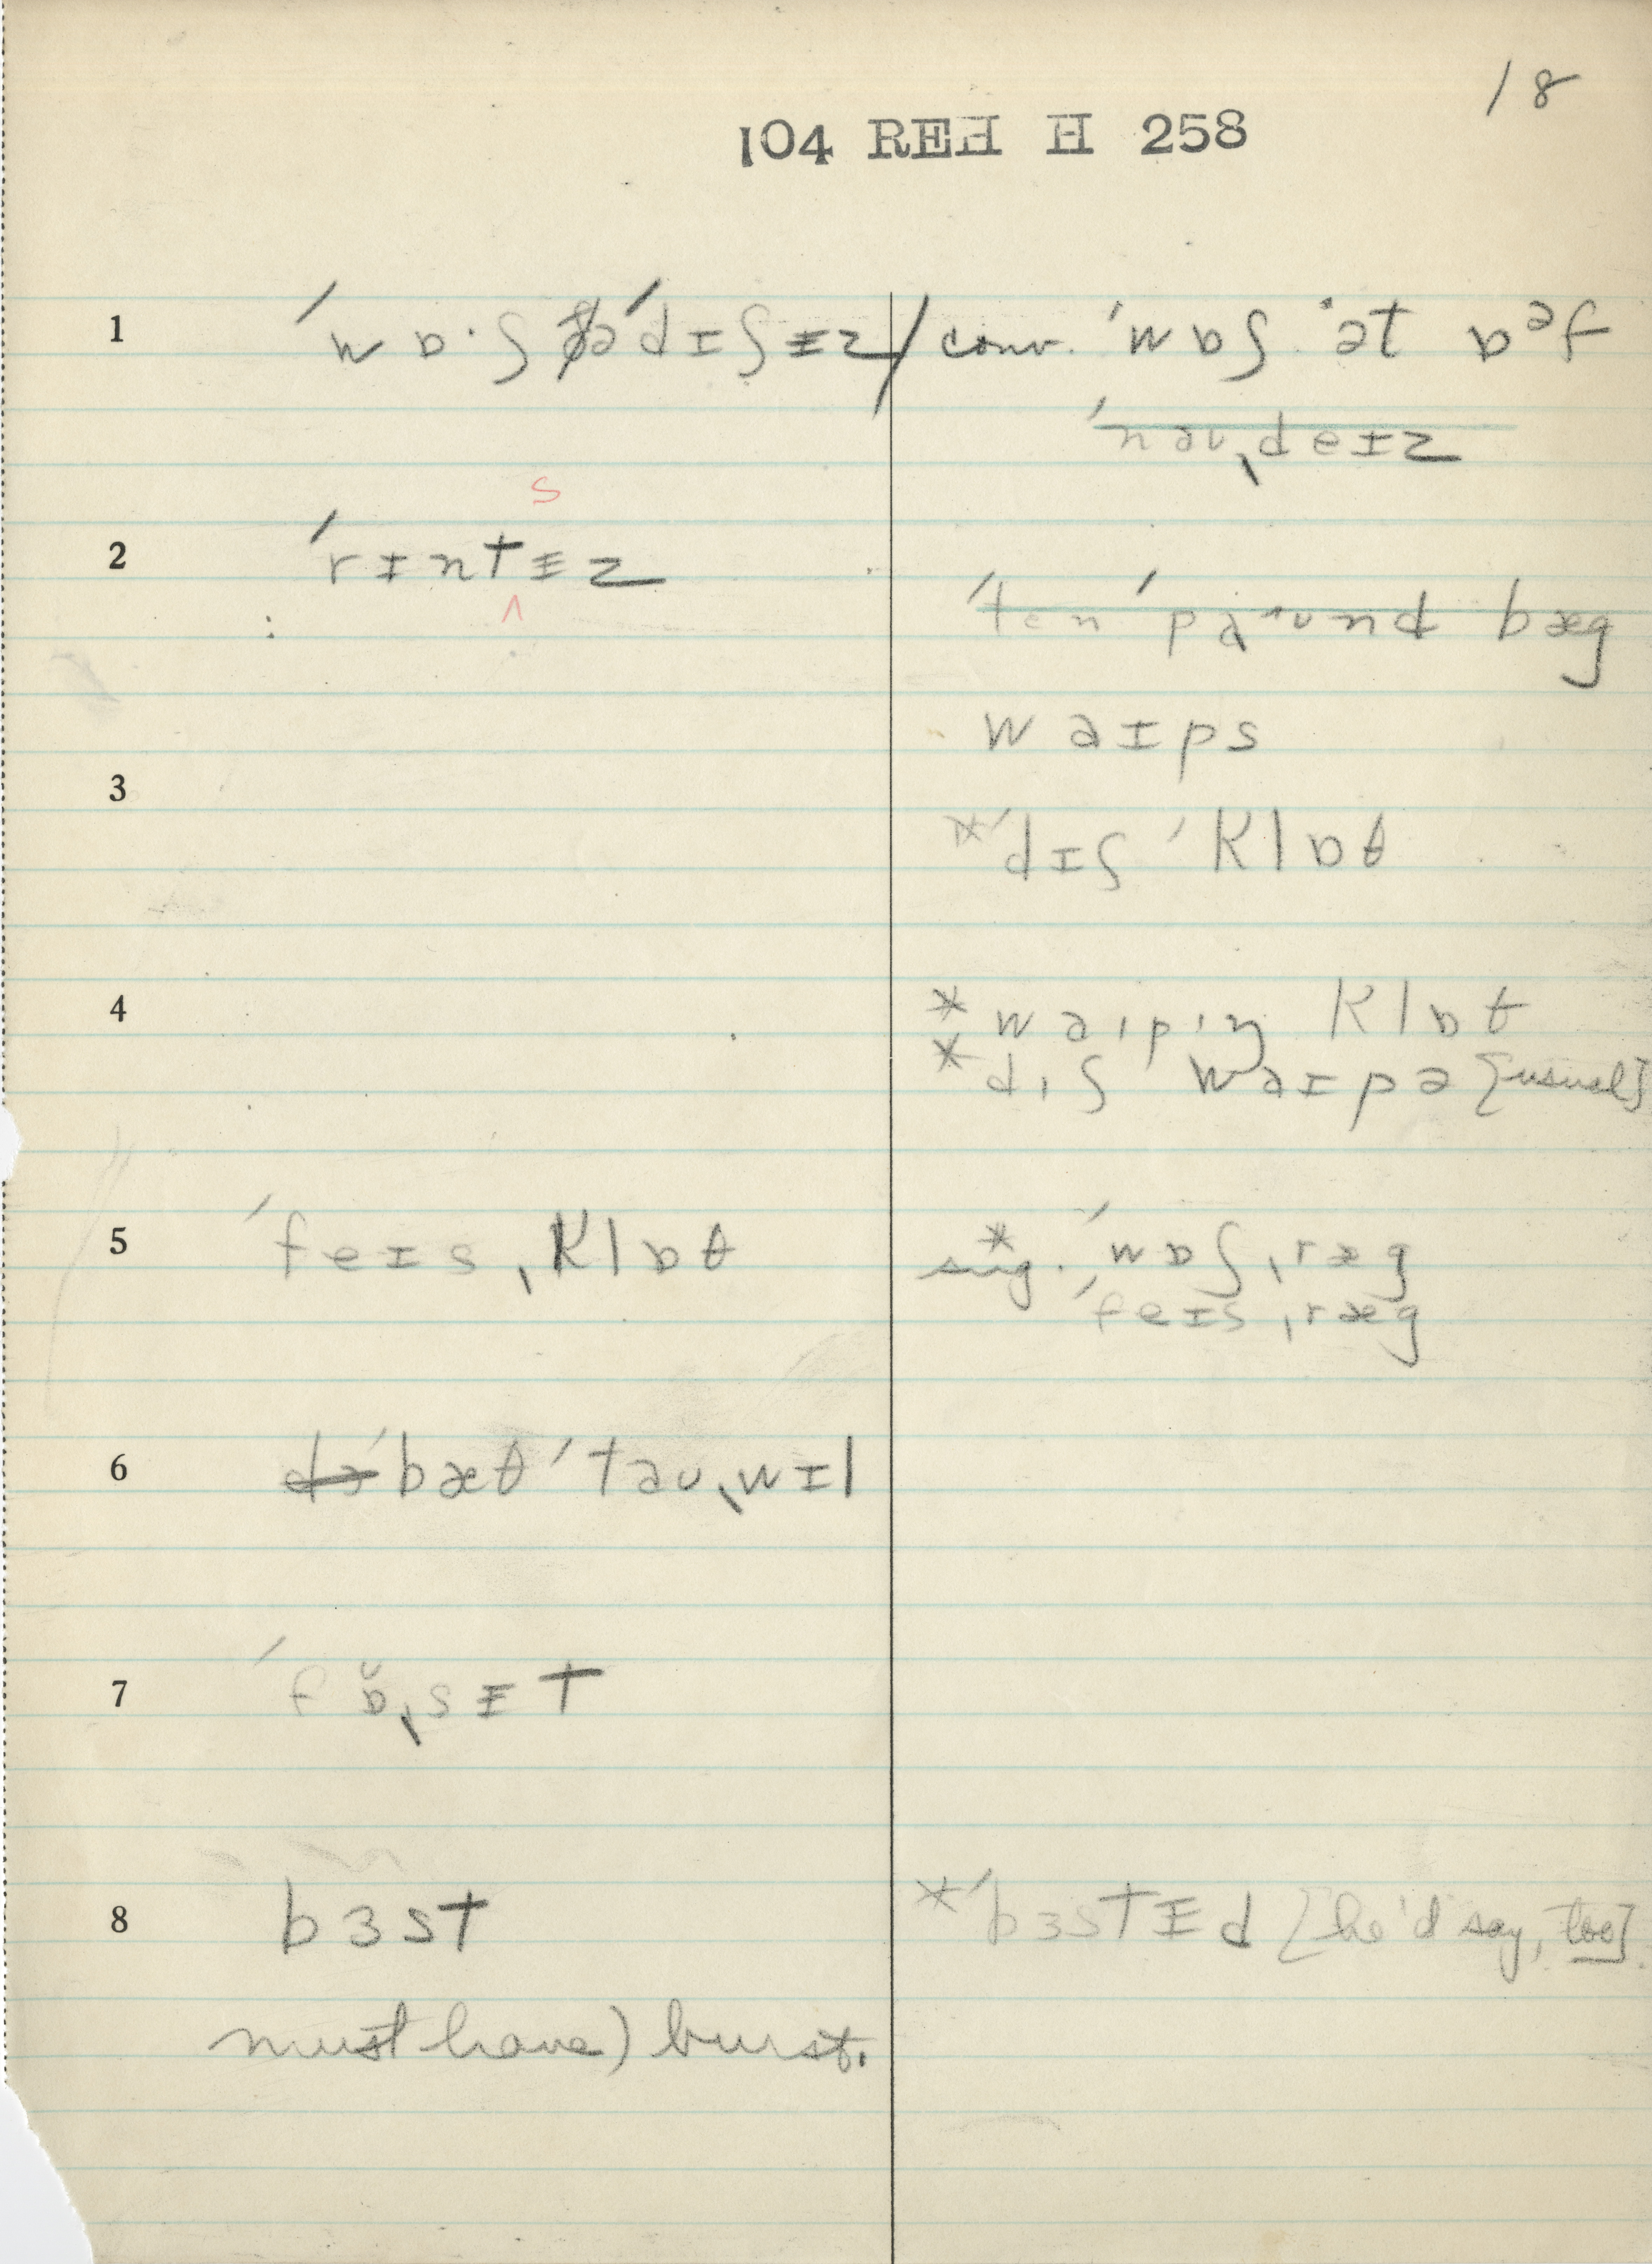 18
104 REH H 258
1 ˈwɒ·ʃ ðəˈdɪʃɨz / conv. ˈwɒʃ ˈət ɒᵊf
ˈnaʊˌdeɪz
s
2 ˈrɪntɨz
^
ˈten ˈpaᵊʊnd bæg
waɪps
3
*ˈdɪʃ ˈklɒθ
4 *waɪpɪŋ klɒθ
*dɪʃ waɪpə [usual]
5 ˈfeɪsˌklɒθ sug. *ˈwɒʃˌræg
ˈfeɪsˌræg
6 ˈbæθ ˈtaʊˌwɪl
7 ˈfɒ̆ˌsɨt
8 bɜst *ˈbɜstɨd [he'd say, too].
must have) burst.